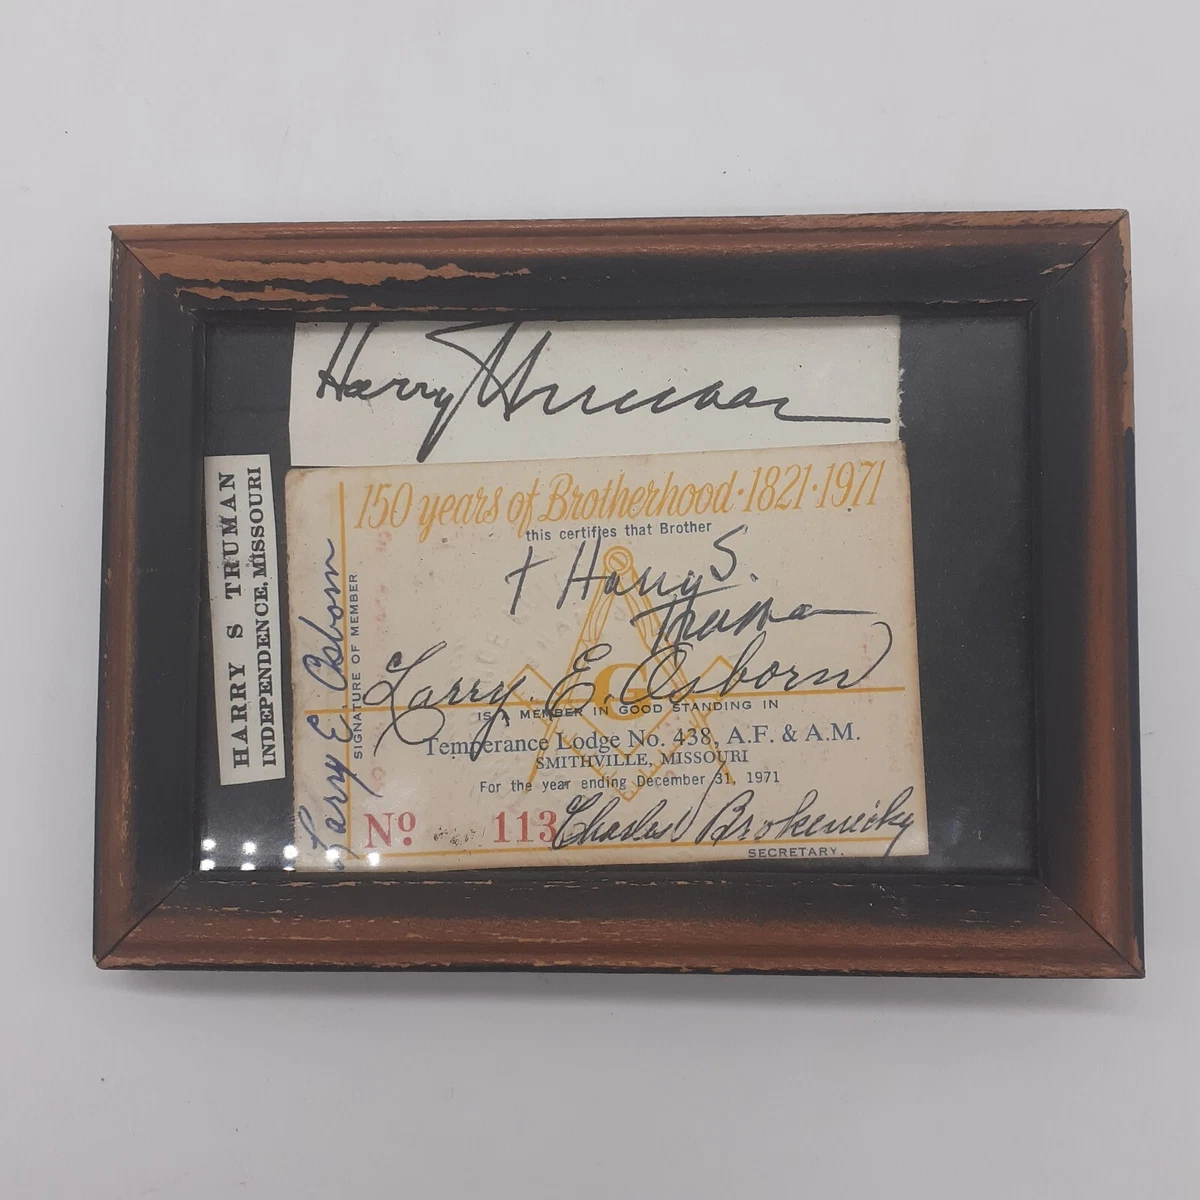 Harry S Truman
HARRY S TRUMAN
INDEPENDENCE, MISSOURI
150 years of Brotherhood · 1821 · 1971
this certifies that Brother
+ Harry S.
Truman
Larry E. Osborn
IS A MEMBER IN GOOD STANDING IN
Temperance Lodge No. 438, A.F. & A.M.
SMITHVILLE, MISSOURI
For the year ending December 31, 1971
Nº 113
Charles Brokenicky
SECRETARY.
Larry E. Osborn
SIGNATURE OF MEMBER
G